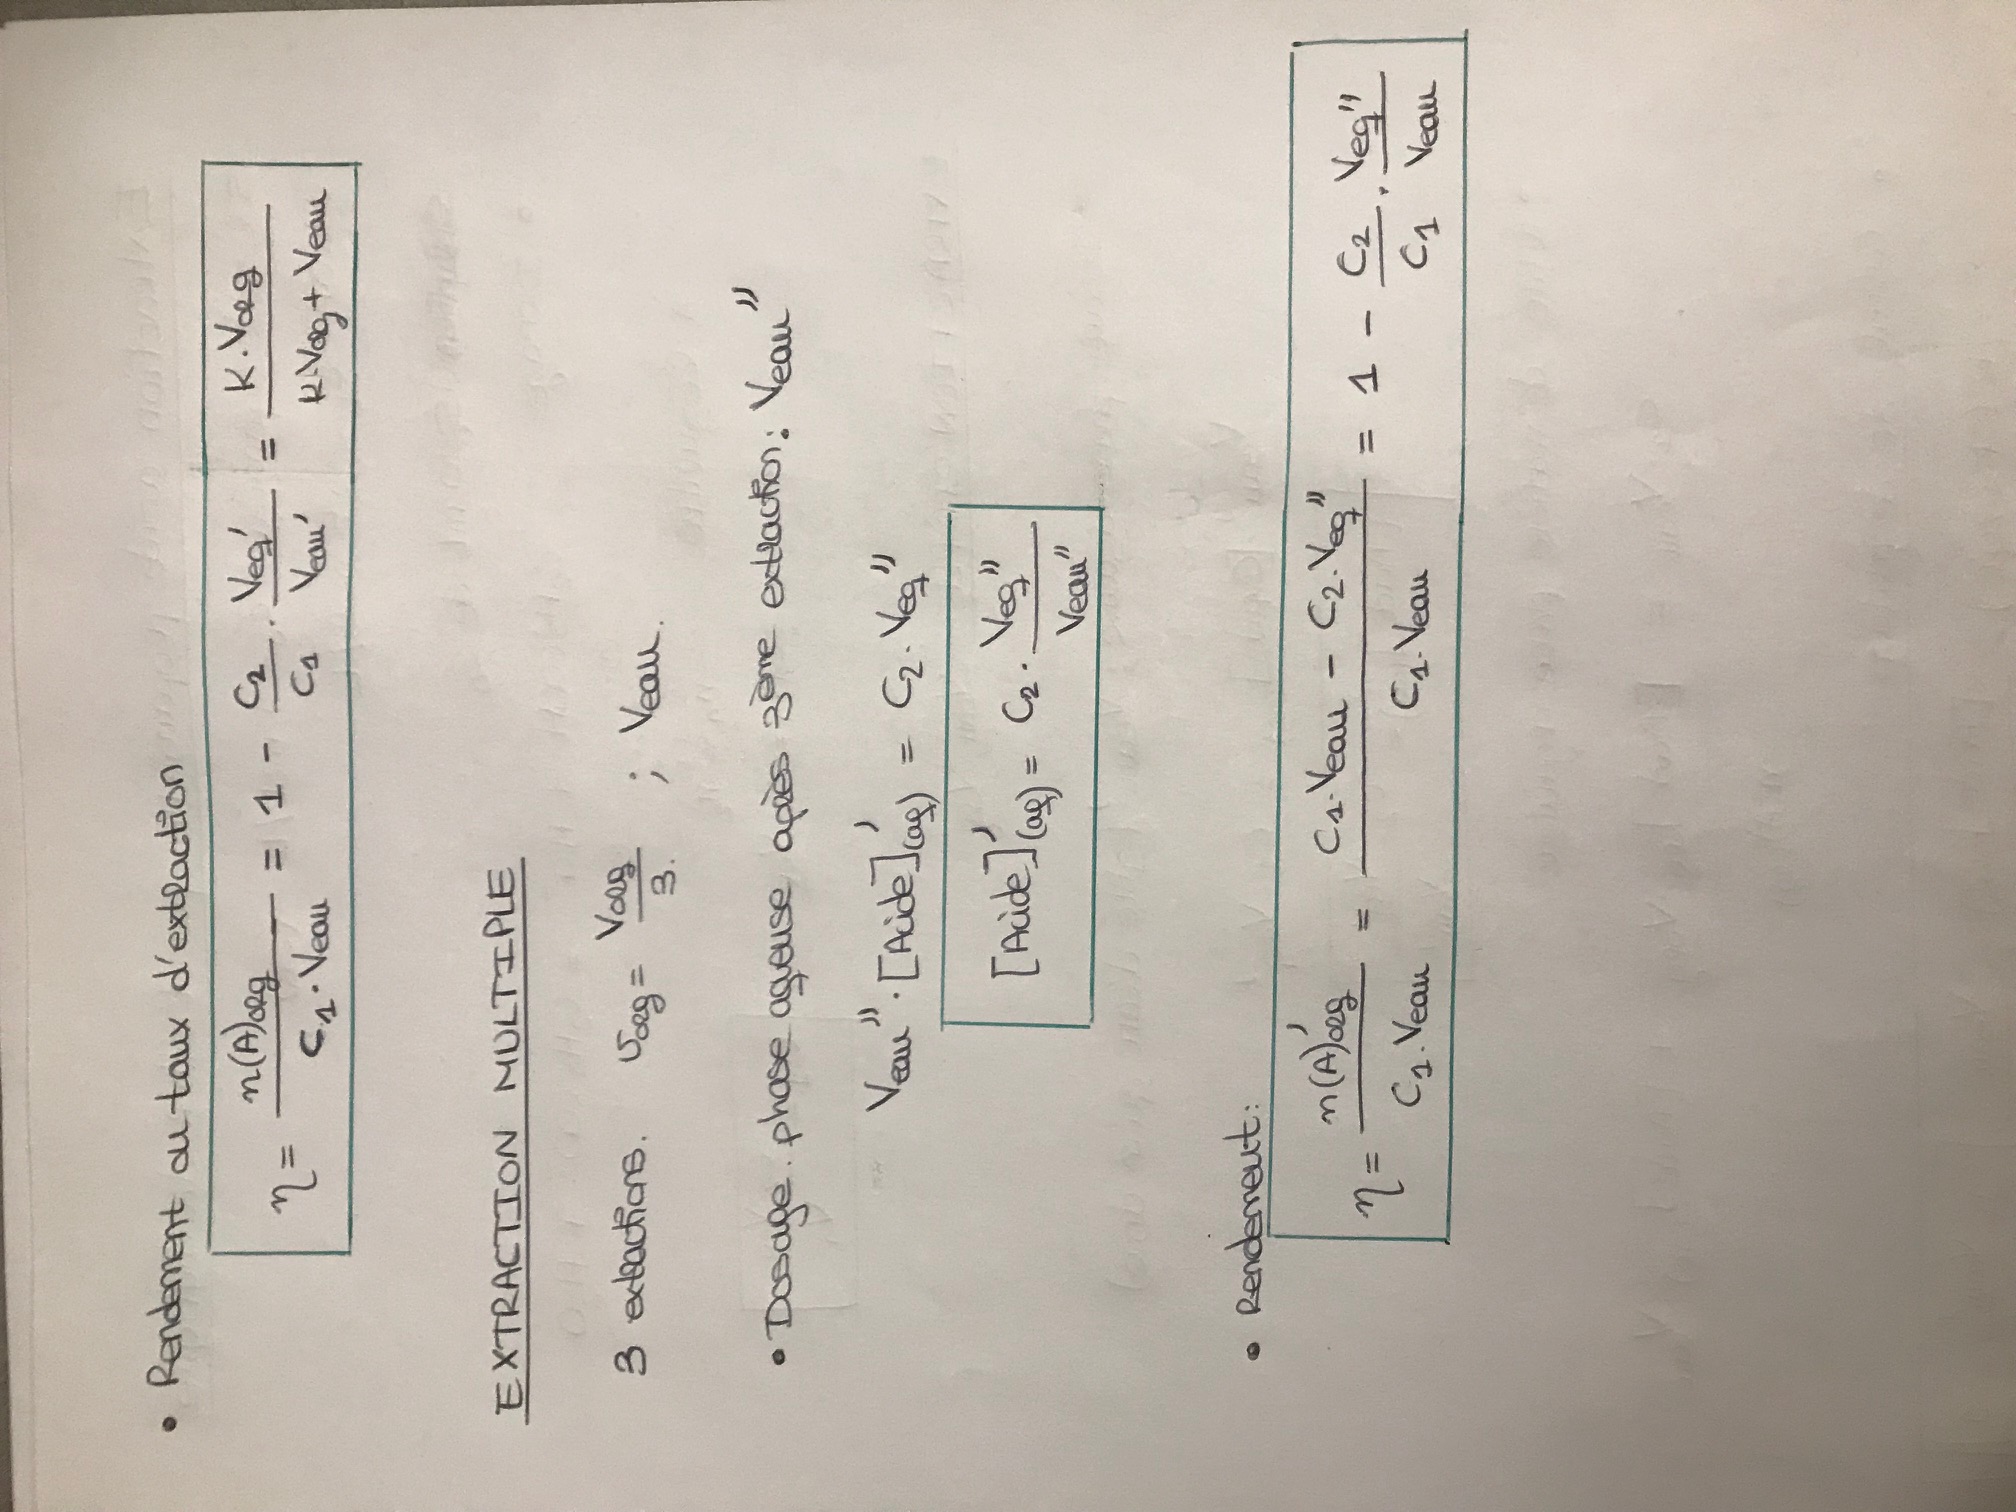 • Rendement ou taux d'extraction
η = n(A)org / C1 . Veau = 1 - C2 / C1 . Veq' / Veau' = K . Vorg / K . Vorg + Veau
EXTRACTION MULTIPLE
3 extractions. vorg = Vorg / 3. ; Veau.
• Dosage phase aqeuse après 3ème extraction : Veau"
Veau" . [Acide]'(aq) = C2 . Veq"
[Acide]'(aq) = C2 . Veq" / Veau"
• Rendement :
η = n(A)'org / C1 . Veau = C1 . Veau - C2 . Veq" / C1 . Veau = 1 - C2 / C1 . Veq" / Veau